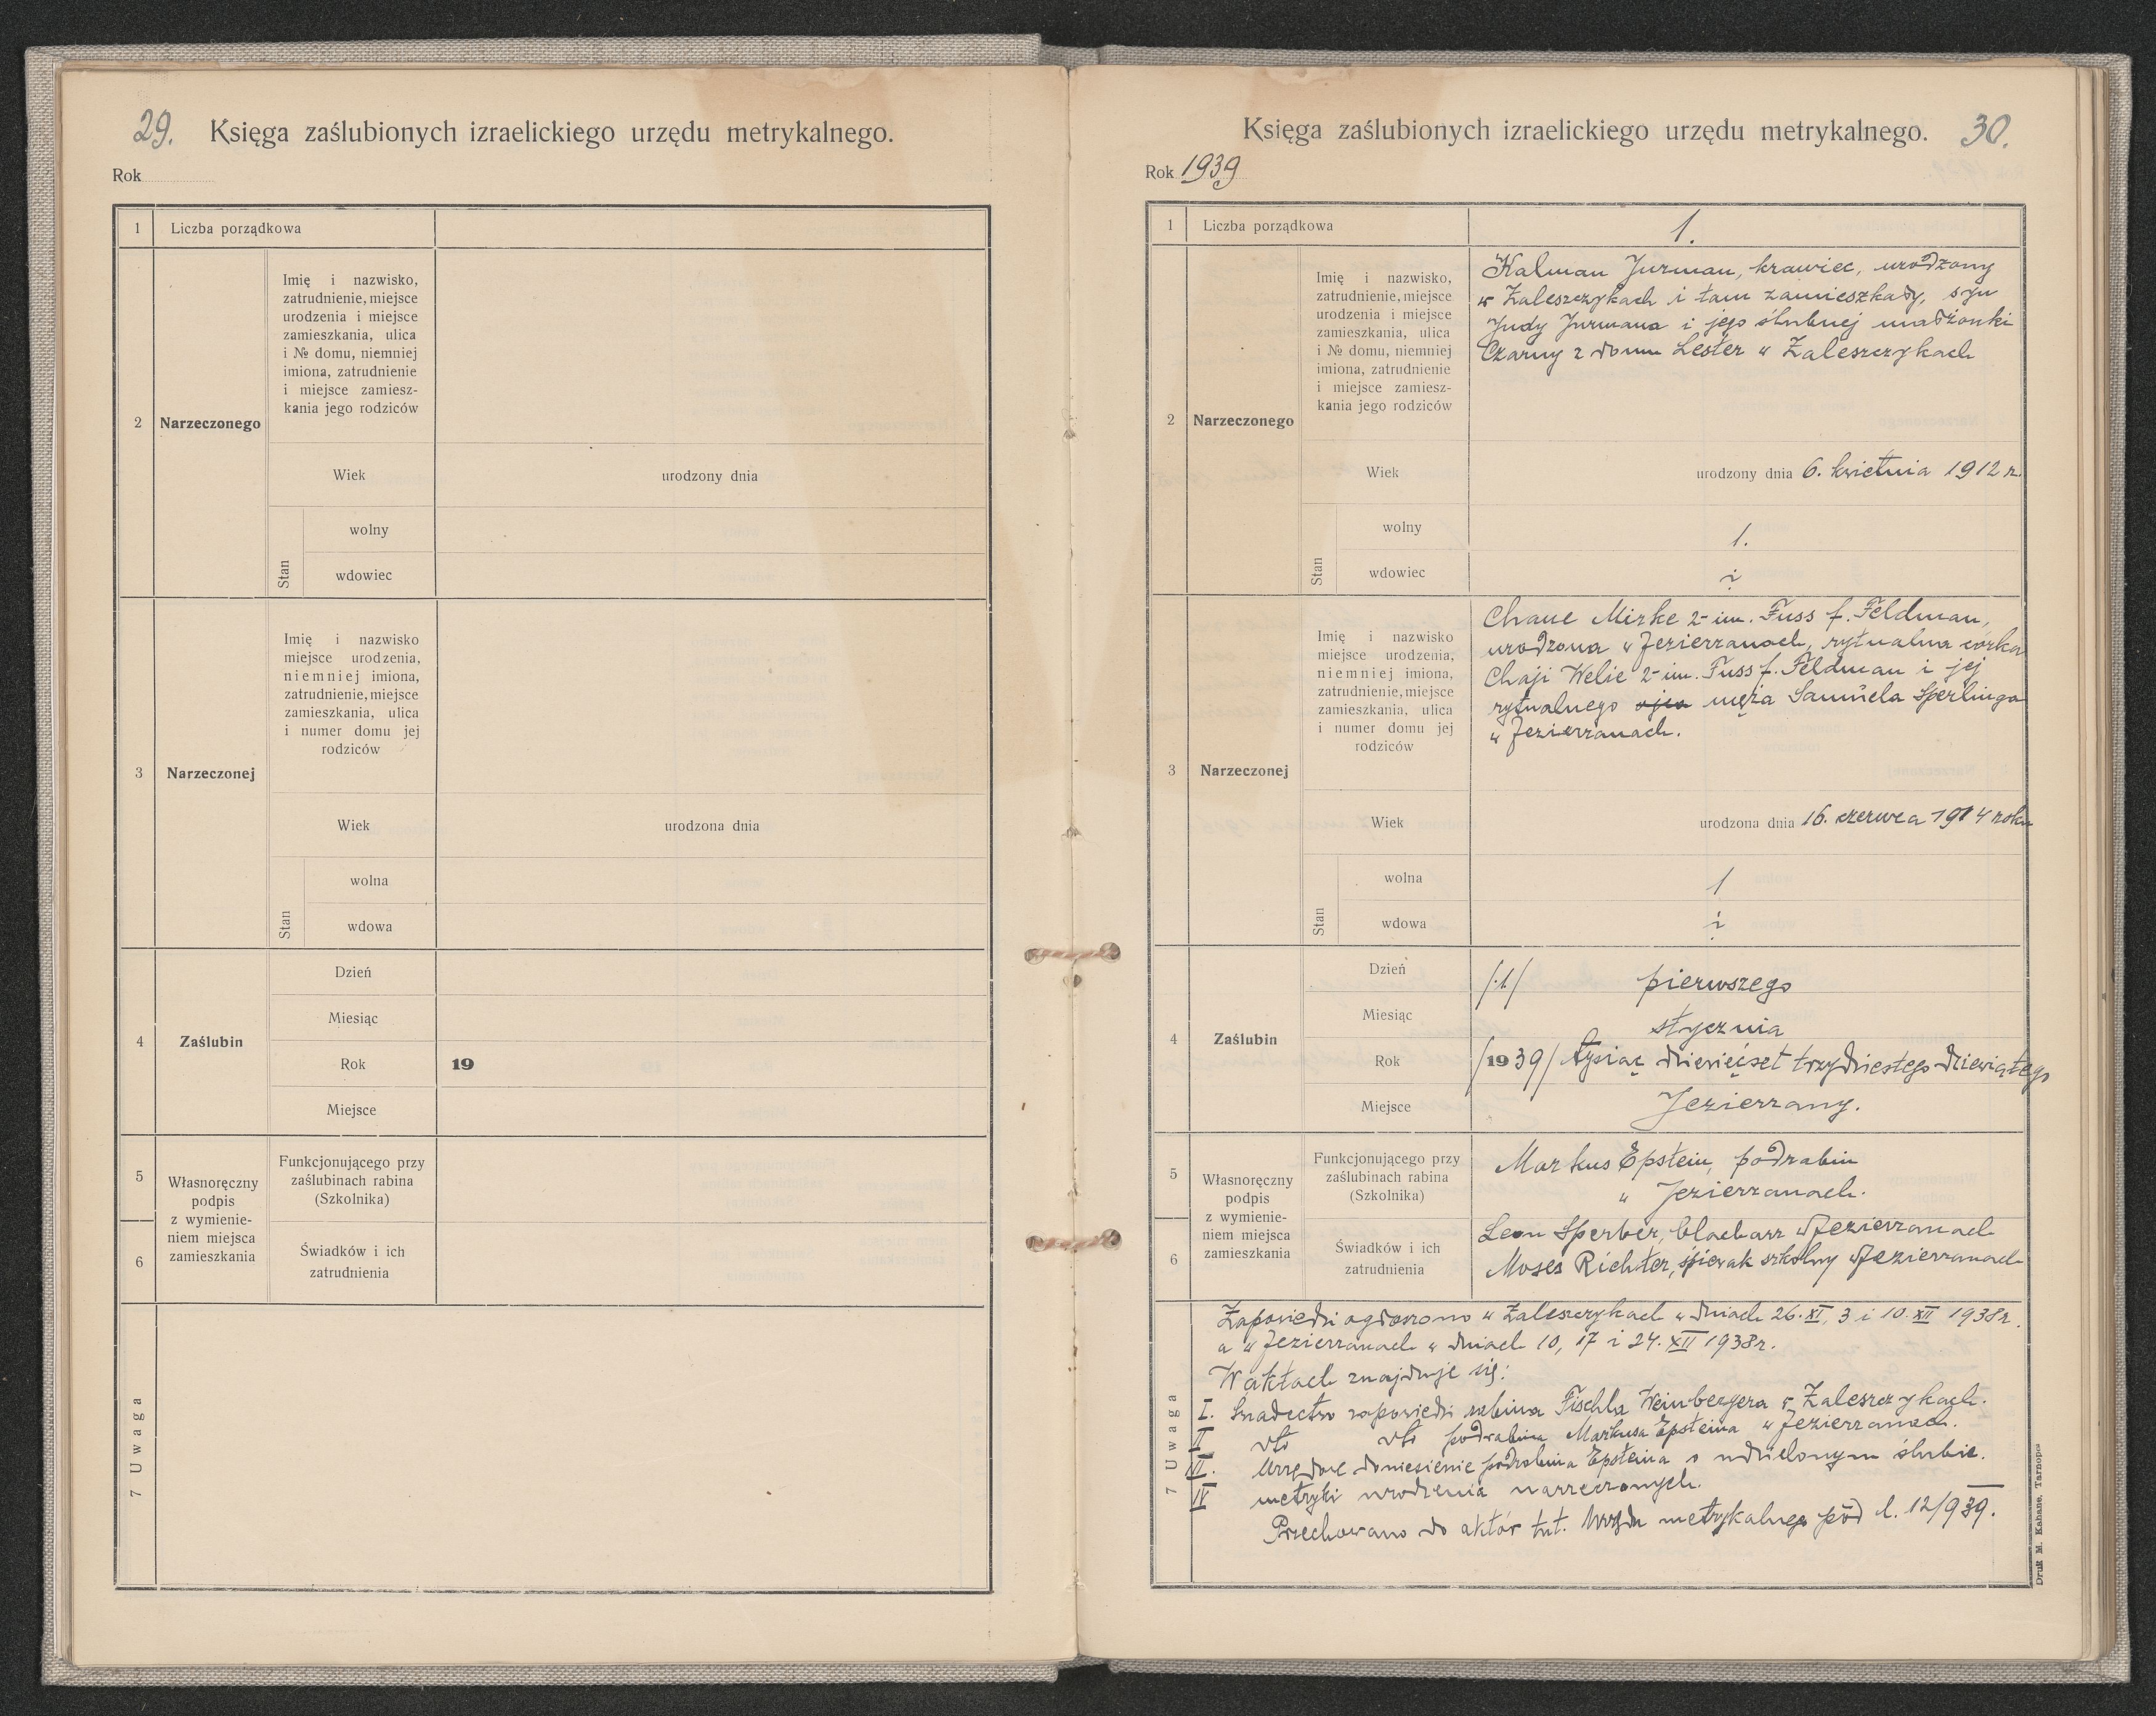 29.
Księga zaślubionych izraelickiego urzędu metrykalnego.
Rok
1
Liczba porządkowa
2
Narzeczonego
Imię i nazwisko,
zatrudnienie, miejsce
urodzenia i miejsce
zamieszkania, ulica
i № domu, niemniej
imiona, zatrudnienie
i miejsce zamiesz-
kania jego rodziców
Wiek
urodzony dnia
Stan
wolny
wdowiec
3
Narzeczonej
Imię i nazwisko
miejsce urodzenia,
niemniej imiona,
zatrudnienie, miejsce
zamieszkania, ulica
i numer domu jej
rodziców
Wiek
urodzona dnia
Stan
wolna
wdowa
4
Zaślubin
Dzień
Miesiąc
Rok
19
Miejsce
5
6
Własnoręczny
podpis
z wymienie-
niem miejsca
zamieszkania
Funkcjonującego przy
zaślubinach rabina
(Szkolnika)
Świadków i ich
zatrudnienia
7 Uwaga
Księga zaślubionych izraelickiego urzędu metrykalnego.
30.
Rok 1939
1
Liczba porządkowa
1.
2
Narzeczonego
Imię i nazwisko,
zatrudnienie, miejsce
urodzenia i miejsce
zamieszkania, ulica
i № domu, niemniej
imiona, zatrudnienie
i miejsce zamiesz-
kania jego rodziców
Kalman Jurman, krawiec, urodzony
w Zaleszczykach i tam zamieszkały, syn
Judy Jurmana i jego ślubnej małżonki
Czarny z domu Lester w Zaleszczykach
Wiek
urodzony dnia 6. kwietnia 1912 r.
Stan
wolny
1.
wdowiec
3
Narzeczonej
Imię i nazwisko
miejsce urodzenia,
niemniej imiona,
zatrudnienie, miejsce
zamieszkania, ulica
i numer domu jej
rodziców
Chane Mirke 2-im. Fuss f. Feldman,
urodzona w Jezierzanach, rytualna córka
Chaji Welie 2-im. Fuss f. Feldman i jej
rytualnego ojca męża Samuela Sperlinga
w Jezierzanach.
Wiek
urodzona dnia 16. czerwca 1914 roku
Stan
wolna
1
wdowa
4
Zaślubin
Dzień
/1/ pierwszego
Miesiąc
stycznia
Rok
/1939/ tysiąc dziewięćset trzydziestego dziewiątego
Miejsce
Jezierzany.
5
6
Własnoręczny
podpis
z wymienie-
niem miejsca
zamieszkania
Funkcjonującego przy
zaślubinach rabina
(Szkolnika)
Markus Epstein, podrabin
w Jezierzanach.
Świadków i ich
zatrudnienia
Leon Sperber, blacharz w Jezierzanach
Moses Richter, śpiewak szkolny w Jezierzanach
7 Uwaga
Zapowiedzi ogłoszono w Zaleszczykach w dniach 26.XI, 3 i 10.XII 1938 r.
a w Jezierzanach w dniach 10, 17 i 24.XII 1938 r.
W aktach znajduje się:
I. Świadectwo zapowiedzi rabina Fischla Weinbergera w Zaleszczykach.
II dto dto podrabina Markusa Epsteina w Jezierzanach.
III. Urzędowe doniesienie podrabina Epsteina o udzielonym ślubie.
IV metryki urodzenia narzeczonych.
Przechowano do aktów tut. Urzędu metrykalnego pod l. 12/939.
Druk M. Kahane, Tarnopol